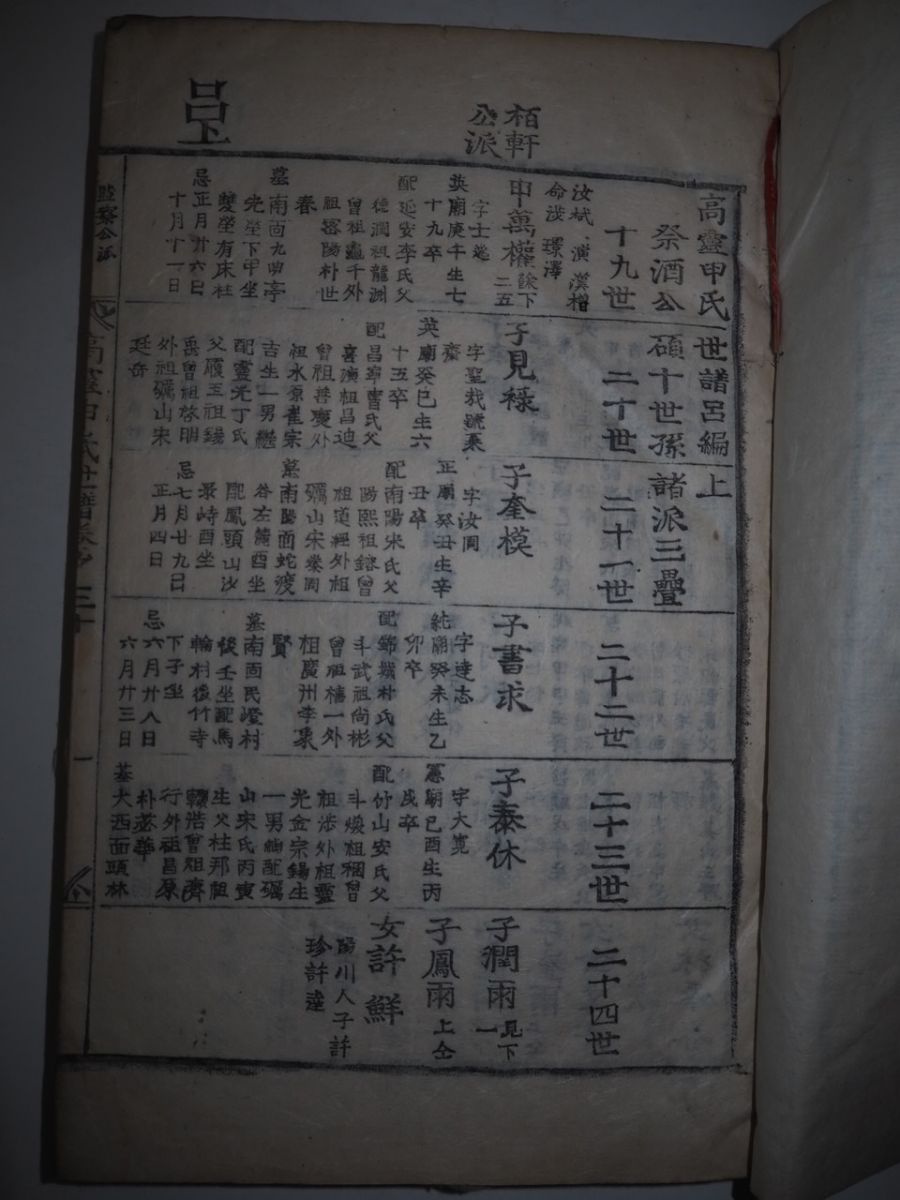 呂上
栢軒
公派
高靈申氏世譜呂編上
祭酒公碩十世孫諸派三疊
十九世
二十世
二十一世
二十二世
二十三世
二十四世
申萬權
二五
字士逸
英廟庚午生七
十九卒
配延安李氏父
德潤祖龍洲
曾祖
千外
祖密陽朴世
春
墓南面九曲亭
先塋下甲坐
雙塋有床柱
忌正月廿六日
十月十一日
子見祿
字聖哉號栗
齋
英廟癸巳生六
十五卒
配昌寧曹氏父
喜演祖昌迪
曾祖善慶外
祖水原崔宗
吉生一男繼
配靈光丁氏
父履三祖錫
禹曾祖啓明
外祖礪山宋
廷岳
子奎模
字汝周
正廟癸丑生辛
丑卒
配南陽宋氏父
陽熙祖鎔曾
祖道經外祖
礪山宋
周
墓南陽面蛇渡
谷左麓酉坐
配鳳頭山沙
最峙酉坐
忌七月廿九日
正月四日
子書求
字達志
純廟癸未生乙
卯卒
配錦城朴氏父
斗武祖尚彬
曾祖檣一外
祖廣州李
賢
墓南面民燈村
後壬坐配馬
輪村後竹寺
下子坐
忌六月廿八日
六月廿三日
子泰休
字大寬
憲廟己酉生丙
戌卒
配竹山安氏父
斗煥祖稛曾
祖
外祖靈
光金宗錫生
一男細配礪
山宋氏丙寅
生父柱邦祖
浩曾祖齊
行外祖昌原
朴
華
墓大西面頭林
子潤雨
見下
一
子鳳雨
上仝
女許鮮
陽川人子許
珍許達
監察公派
高靈申氏世譜卷
一